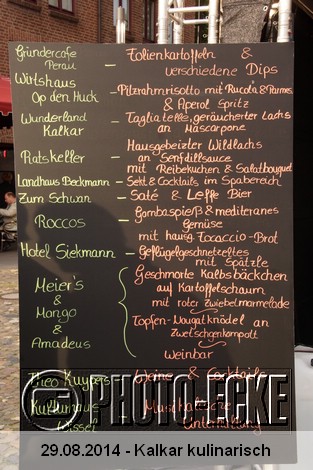 Gründercafe
Perau - Folienkartoffeln &
verschiedene Dips
Wirtshaus
Op den Huck - Pilzrahmrisotto mit Rucola & Parmes
& Aperol Spritz
Wunderland
Kalkar - Tagliatelle, geräucherter Lachs
an Mascarpone
Ratskeller - Hausgebeizter Wildlachs
an Senfdillsauce
mit Reibekuchen & Salatbouquet
Landhaus Beckmann - Sekt & Cocktails im Spabereich
Zum Schwan - Saté & Leffe Bier
Roccos - Gambaspieß & mediteranes
Gemüse
mit hausg. Focaccio-Brot
Hotel Siekmann - Geflügelgeschnetzeltes
mit Spätzle
Meier's
&
Mango
&
Amadeus
Geschmorte Kalbsbäckchen
auf Kartoffelschaum
mit roter Zwiebelmarmelade
Topfen-Nougatknödel an
Zwetschgenkompott
Weinbar
Theo Kuypers - Weine & Cocktails
Kulturhaus - Musikalische
Wissel Unterhaltung
© PHOTO ECKE
29.08.2014 - Kalkar kulinarisch